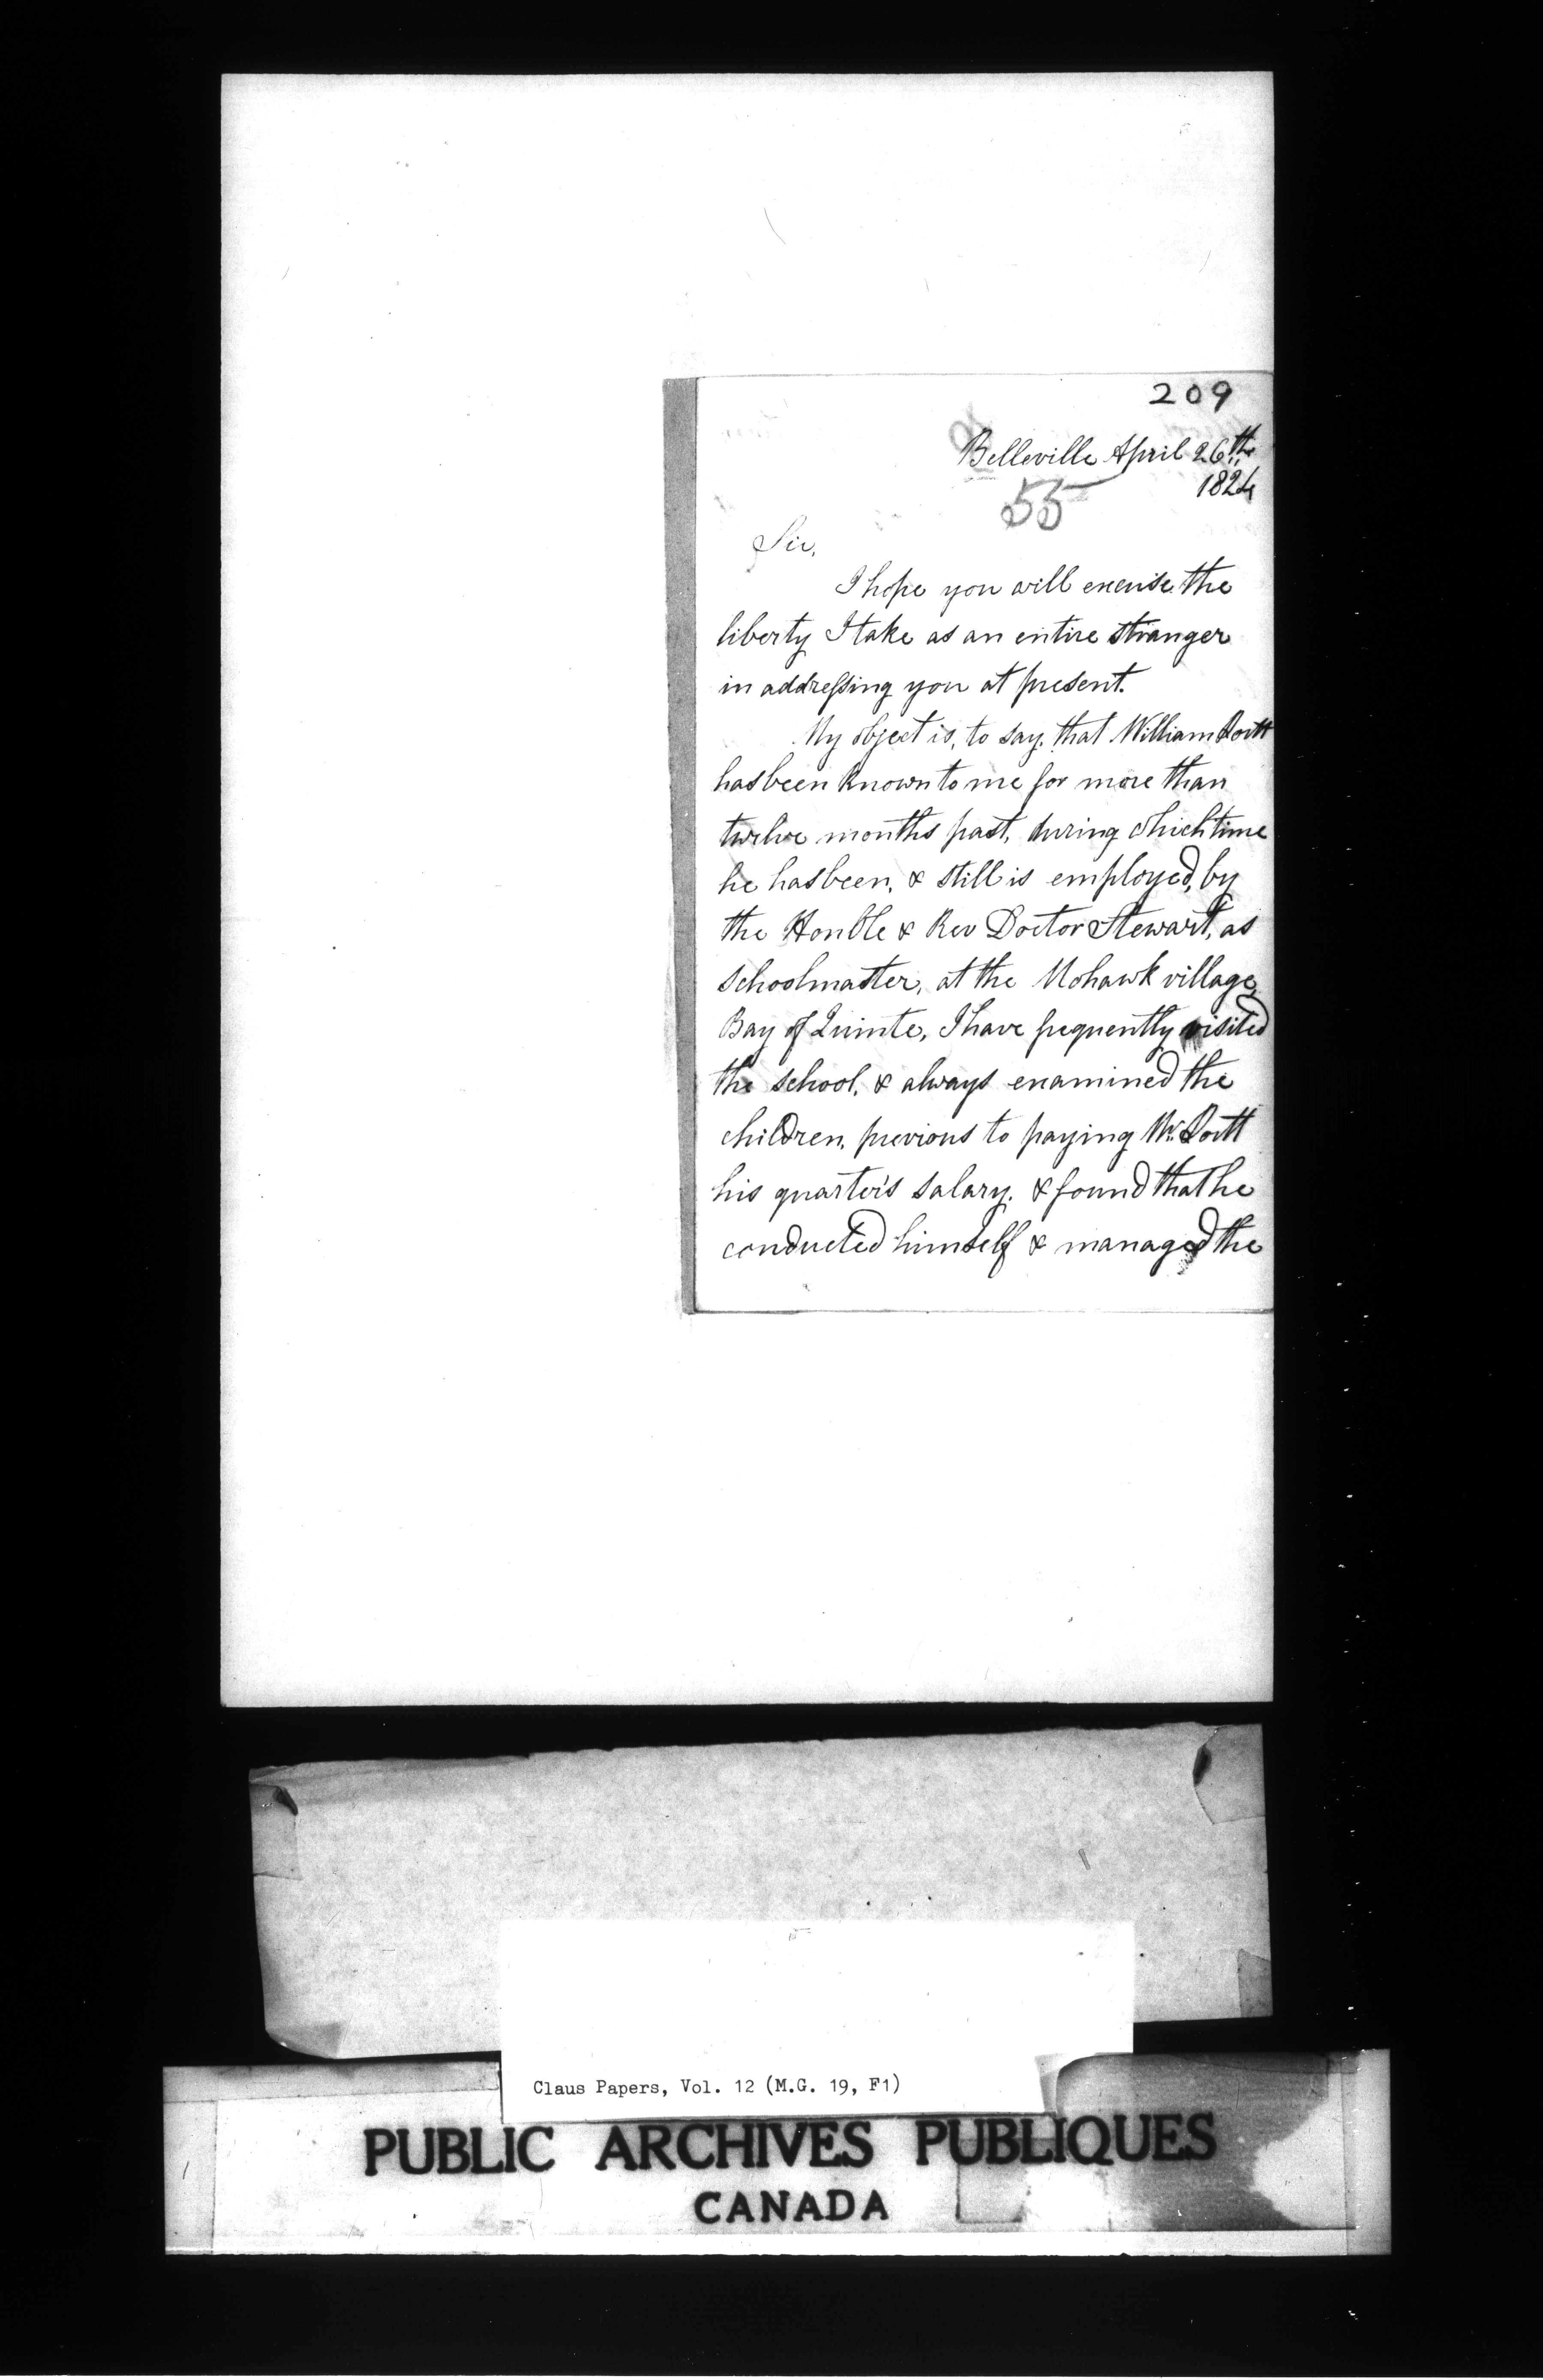 209
Belleville April 26th
1824
55
Sir,
I hope you will excuse the
liberty I take as an entire stranger
in addressing you at present.
My object is, to say, that William
has been known to me for more than
twelve months past, during which time
he has been, & still is employed, by
the Honble & Rev Doctor Stewart, as
schoolmaster, at the Mohawk village,
Bay of Quinte, I have frequently visited
the school, & always examined the
children, previous to paying Mr.
his quarter's salary, & found that he
conducted himself & managed the
Claus Papers, Vol. 12 (M.G. 19, F1)
PUBLIC ARCHIVES PUBLIQUES
CANADA